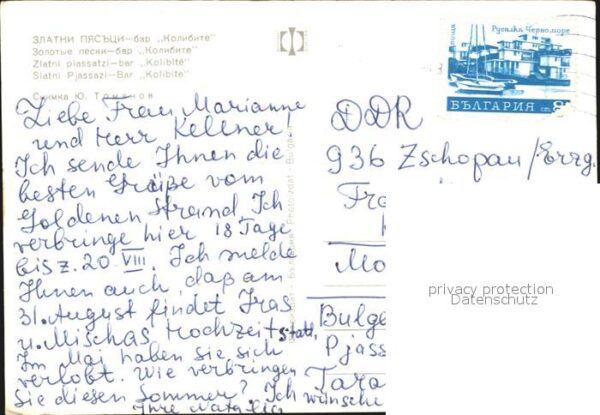 ЗЛАТНИ ПЯСЪЦИ—бар „Колибите"
Золотые пески—бар „Колибите"
Zlatni piassatzi—Bar „Kolibite"
Slatni Pjassazi—Bar „Kolibite"
Снимка Ю. Томанов
Русалка Черноморе
ПОЩА
БЪЛГАРИЯ
Liebe Frau Marianne
und Herr Kellner!
Ich sende Ihnen die
besten Grüße vom
Goldenen Strand. Ich
verbringe hier 18 Tage
bis z. 20 VIII. Ich melde
Ihnen auch, daß am
31. August findet Iras
u. Mischas Hochzeit statt.
Im Mai haben sie sich
verlobt. Wie verbringen
Sie diesen Sommer? Ich wünsche
Ihre Natalia
DDR
936 Zschopau/Erzg.
Fra
Mo
Bulga
Pjass
Tara
privacy protection
Datenschutz